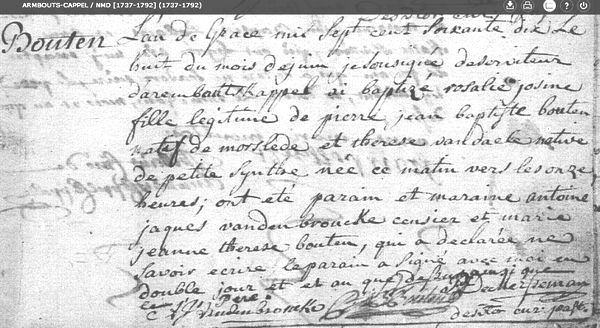 ARMBOUTS-CAPPEL / NMD [1737-1792] (1737-1792)
Bouten
L'an de Grace mil sept cent soixante dix Le
huit du mois de juin je sousigné deserviteur
darembautskappel ai baptizé rosalie josine
fille legitime de pierre jean baptiste bouten
natif de morslede et therese vandaele native
de petite synthe née ce matin vers les onze
heures; ont été parain et maraine antoine
jaques vandenbroucke censier et marie
jeanne therese bouten, qui a declarée ne
savoir ecrire le parain a signé avec moi en
double jour et an que dessus ainsi que
le père
vandenbroucke